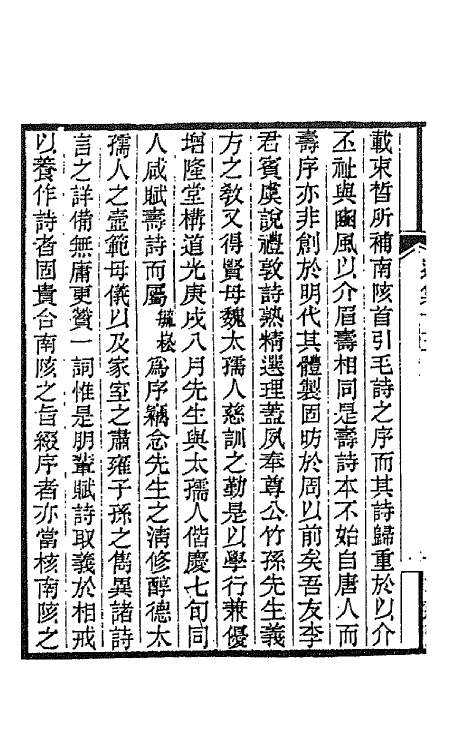 載束皙所補南陔首引毛詩之序而其詩歸重於以介
丕祉與豳風以介眉壽相同是壽詩本不始自唐人而
壽序亦非創於明代其體製固昉於周以前矣吾友李
君賓虞說禮敦詩熟精選理蓋夙奉尊公竹孫先生義
方之教又得賢母魏太孺人慈訓之勤是以學行兼優
增隆堂構道光庚戌八月先生與太孺人偕慶七旬同
人咸賦壽詩而屬毓崧為序竊念先生之淸修醇德太
孺人之壼範母儀以及家室之肅雍子孫之儁異諸詩
言之詳備無庸更贊一詞惟是朋輩賦詩取義於相戒
以養作詩者固貴合南陔之旨綴序者亦當核南陔之